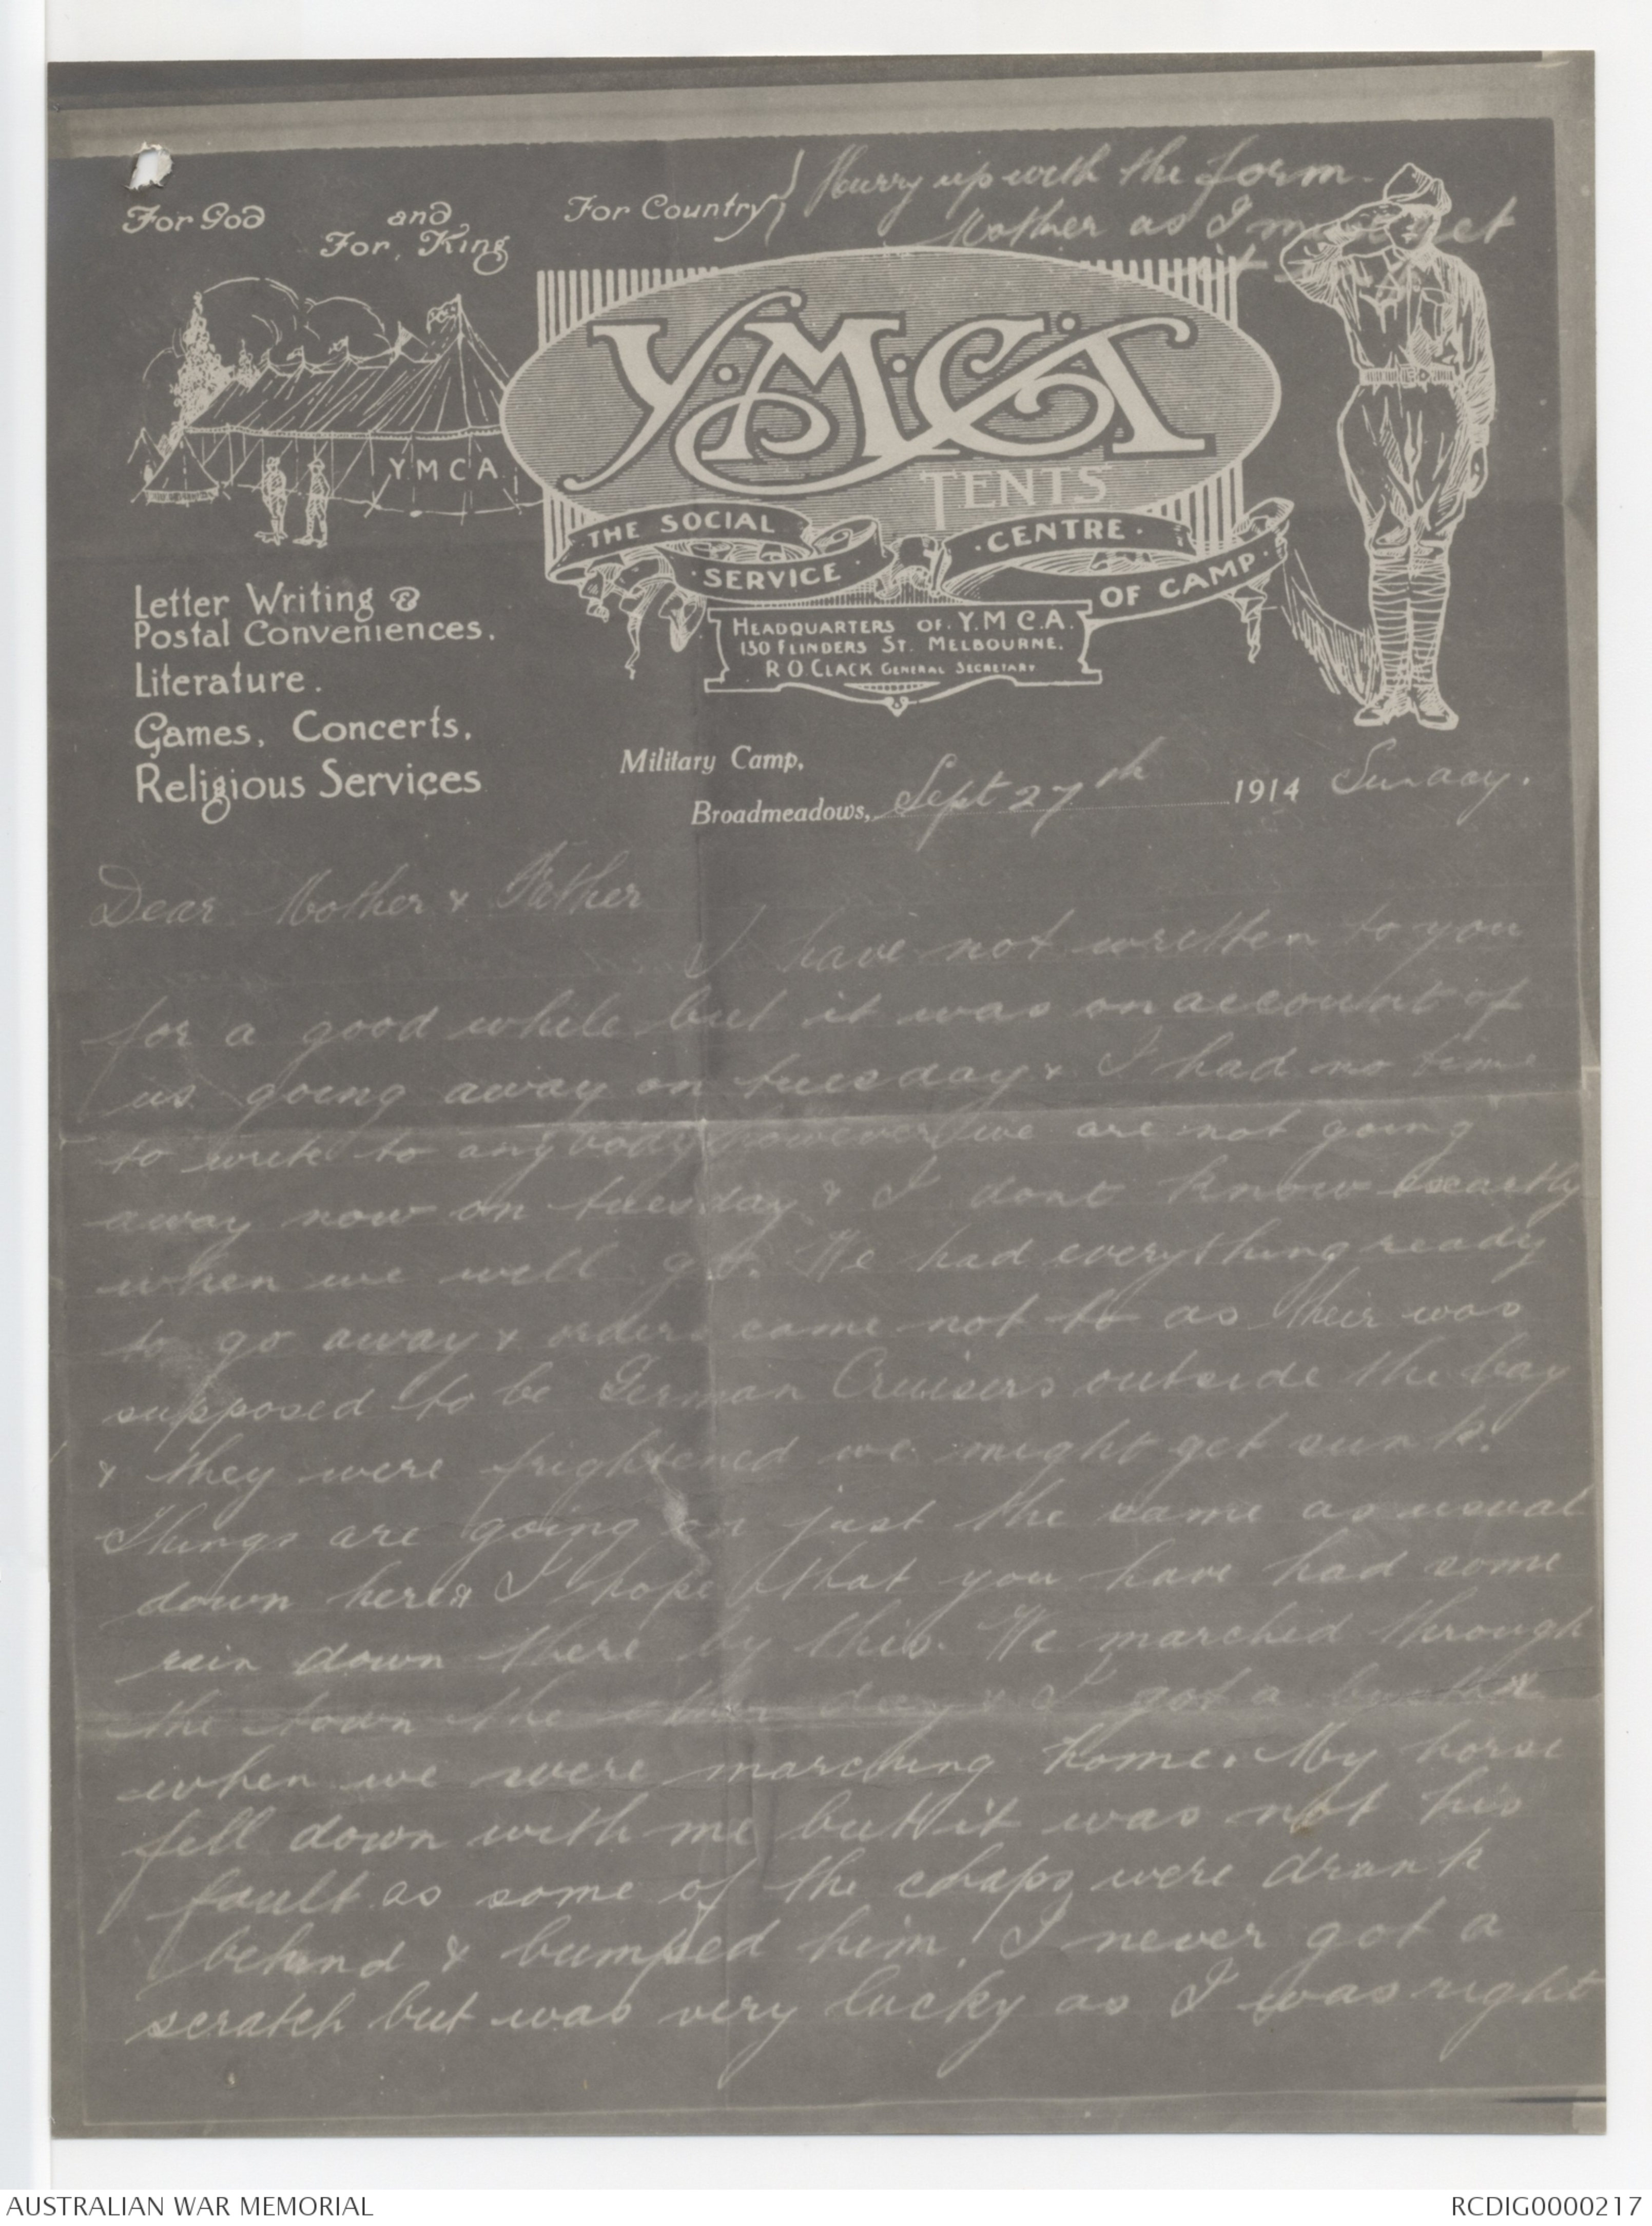 Hurry up with the form
Mother as I must get
it
For God and For King For Country
Y.M.C.A.
TENTS
THE SOCIAL SERVICE CENTRE OF CAMP
YMCA
HEADQUARTERS OF Y.M.C.A.
130 FLINDERS ST. MELBOURNE.
R O CLACK GENERAL SECRETARY
Letter Writing &
Postal Conveniences.
Literature.
Games, Concerts,
Religious Services
Military Camp,
Broadmeadows, Sept 27th 1914 Sunday.
Dear Mother & Father
I have not written to you
for a good while but it was on account of
us going away on tuesday & I had no time
to write to anybody however we are not going
away now on tuesday & I dont know exactly
when we will go. We had everything ready
to go away & orders came not to as their was
supposed to be German Cruisers outside the bay
& they were frightened we might get sunk.
Things are going on just the same as usual
down here & I hope that you have had some
rain down there by this. We marched through
the town the other day & I got a
when we were marching home. My horse
fell down with me but it was not his
fault as some of the chaps were drunk
behind & bumped him. I never got a
scratch but was very lucky as I was right
AUSTRALIAN WAR MEMORIAL
RCDIG0000217